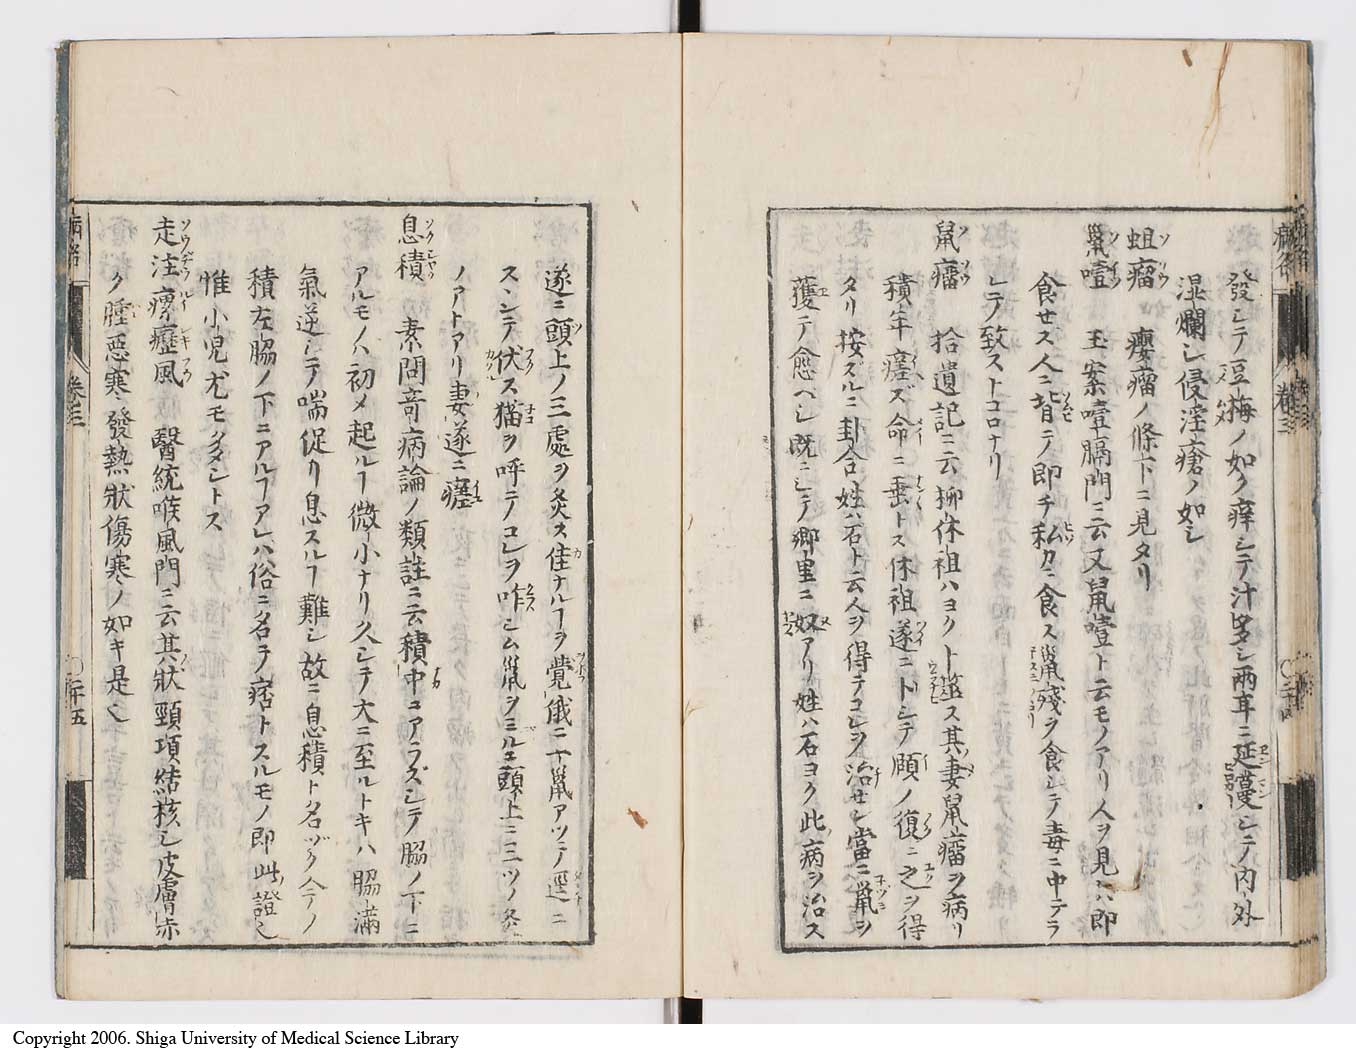 發シテ豆梅ノ如ク痒シテ汁多シ兩耳ニ延蔓シテ内外
湿爛シ侵淫瘡ノ如シ
蛆瘤 癭瘤ノ條下ニ見タリ
鼷噎 玉案噎膈門ニ云又鼠噎ト云モノアリ人ヲ見ハ即
食セス人ニ背テ即チ私カニ食ス鼷殘ヲ食シテ毒ニ中テラ
レテ致ストコロナリ
鼠瘤 拾遺記ニ云柳休祖ハヨク卜筮ス其妻鼠瘤ヲ病リ
積年瘥ズ命ニ垂トス休祖遂ニトシテ頤ノ復ニ之ヲ得
タリ按ズルニ卦合姓ハ石ト云人ヲ得テコレヲ治セシ當ニ鼠ヲ
獲テ愈ベシ既ニシテ郷里ニ奴アリ姓ハ石ヨク此病ヲ治ス
遂ニ頭上ノ三處ヲ灸ス佳ナルヿヲ覺俄ニ一鼷アツテ逕ニ
スヽンテ伏ス猫ヲ呼テコレヲ咋シム鼷ヲミルニ頭上ニ三ツノ灸
ノアトアリ妻遂ニ瘥
息積 素問奇病論ノ類註ニ云積中ニアラズシテ脇ノ下ニ
アルモノハ初メ起ルヿ微小ナリ久シテ大ニ至ルトキハ脇滿
氣逆シテ喘促リ息スルヿ難シ故ニ息積ト名ヅク今テノ
積左脇ノ下ニアルヿアレハ俗ニ名テ痞トスルモノ即此證也
惟小児尤モタダシトス
走注瘰癧風 醫統喉風門ニ云其狀頸項結核シ皮膚赤
ク腫惡寒發熱狀傷寒ノ如キ是也
病名
卷三
〇二十四
卷三
〇二十五
Copyright 2006. Shiga University of Medical Science Library